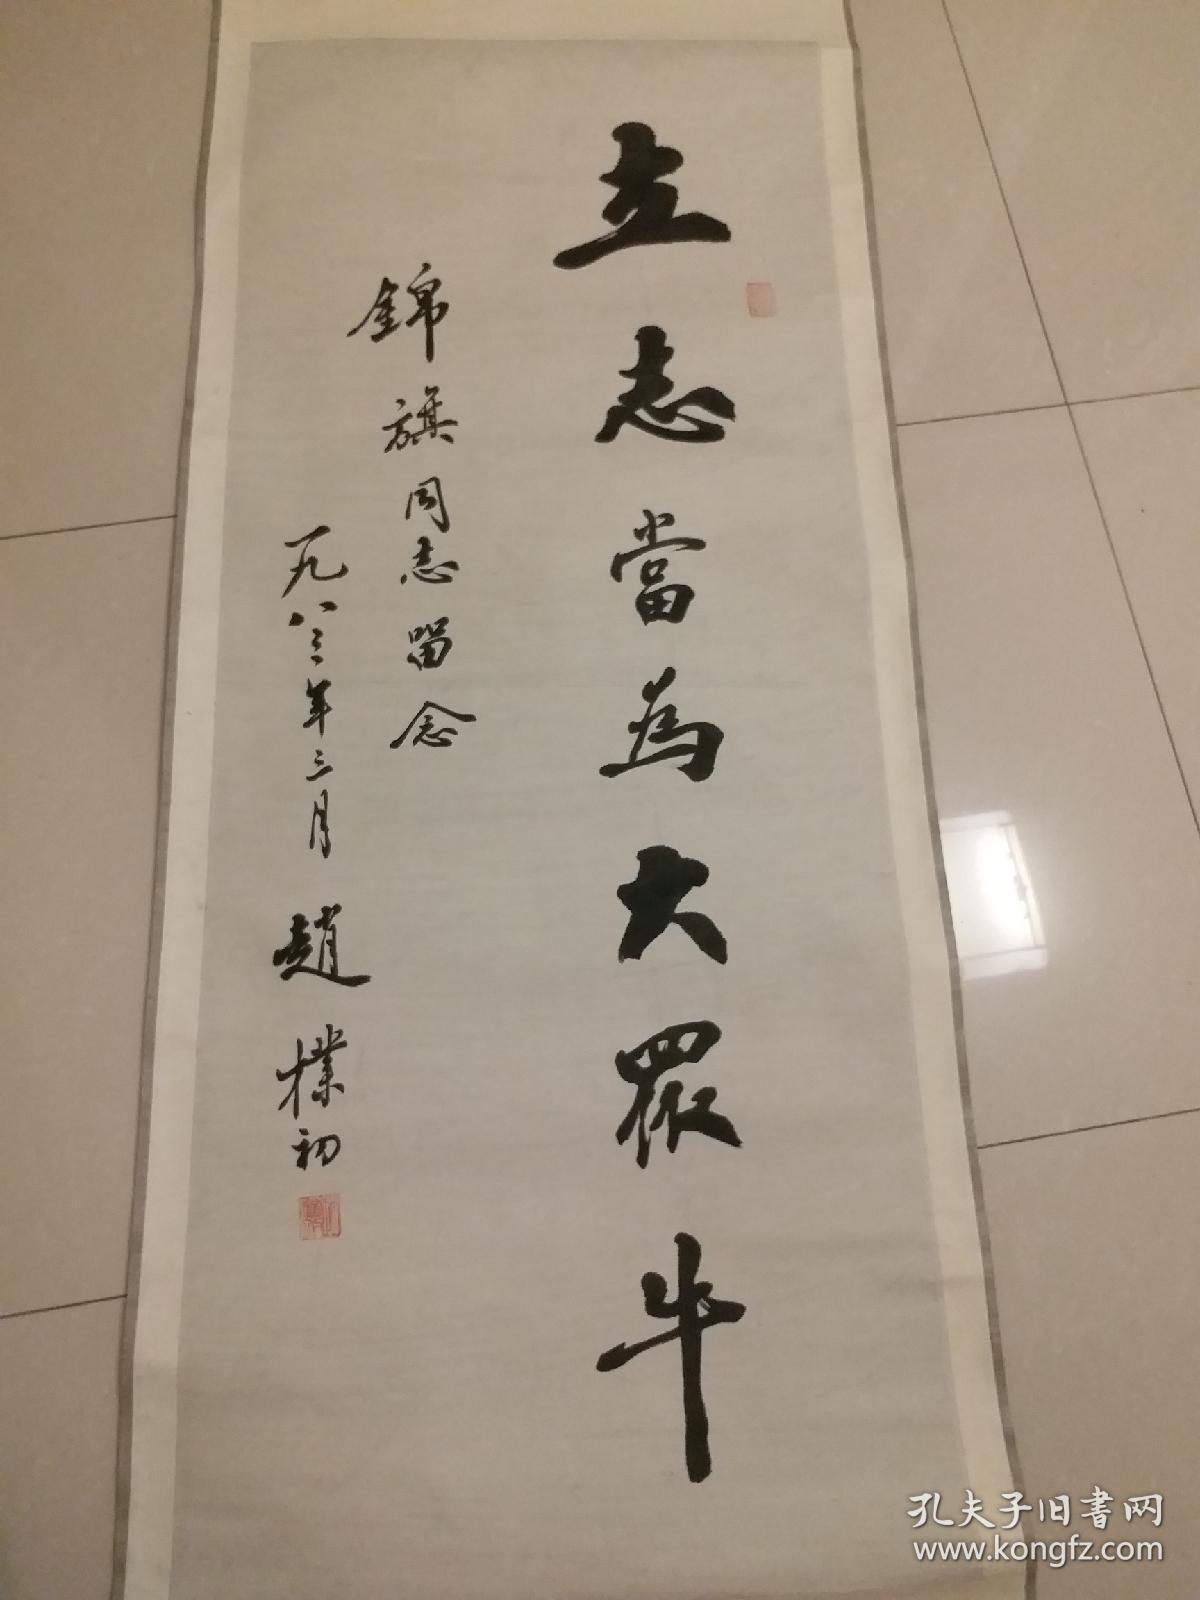 立志當為大眾牛
錦旗同志留念
一九八三年三月 趙樸初
孔夫子旧書网
www.kongfz.com